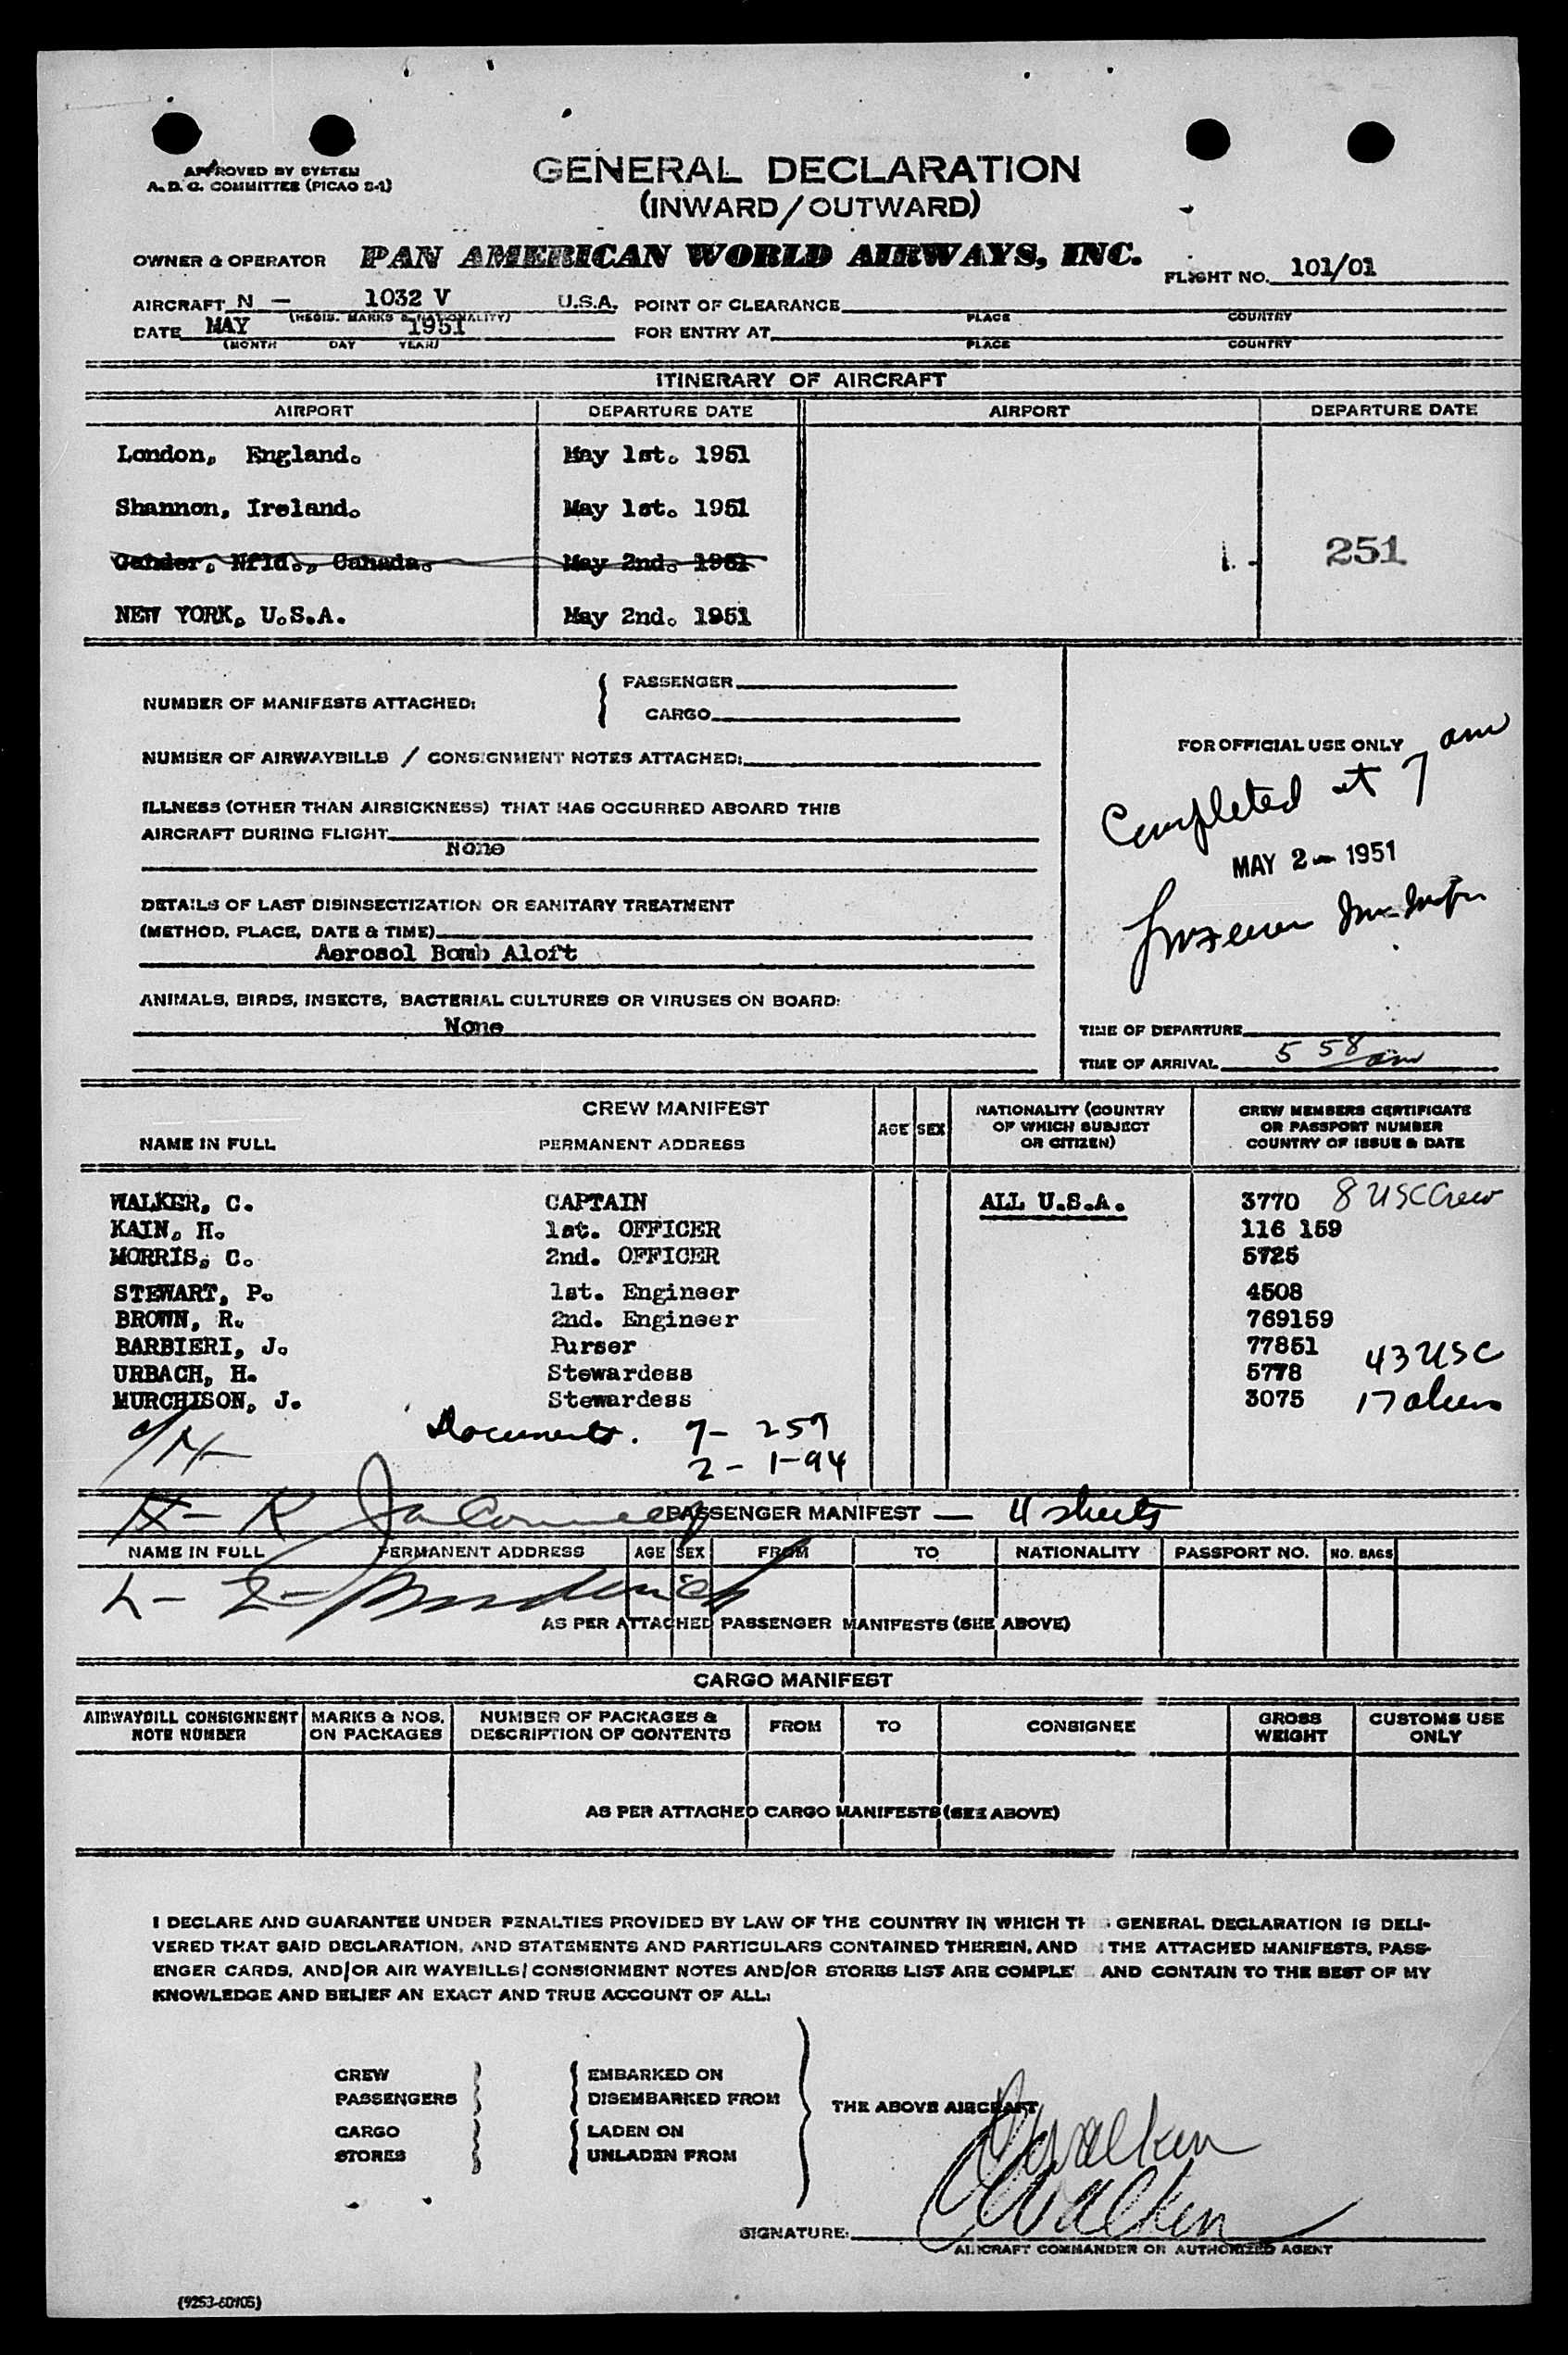 APPROVED BY SYSTEM
A. D. C. COMMITTEE (PICAO S-1)
GENERAL DECLARATION
(INWARD/OUTWARD)
OWNER & OPERATOR PAN AMERICAN WORLD AIRWAYS, INC.
FLIGHT NO. 101/01
AIRCRAFT N — 1032 V U.S.A. POINT OF CLEARANCE
(REGIS. MARKS & NATIONALITY) PLACE COUNTRY
DATE MAY 1951 FOR ENTRY AT
(MONTH DAY YEAR) PLACE COUNTRY
ITINERARY OF AIRCRAFT
AIRPORT DEPARTURE DATE AIRPORT DEPARTURE DATE
London, England. May 1st. 1951
Shannon, Ireland. May 1st. 1951
Gander, Nfld., Canada. May 2nd. 1951
251
NEW YORK, U.S.A. May 2nd. 1951
NUMBER OF MANIFESTS ATTACHED: { PASSENGER
CARGO
NUMBER OF AIRWAYBILLS / CONSIGNMENT NOTES ATTACHED:
ILLNESS (OTHER THAN AIRSICKNESS) THAT HAS OCCURRED ABOARD THIS
AIRCRAFT DURING FLIGHT
None
DETAILS OF LAST DISINSECTIZATION OR SANITARY TREATMENT
(METHOD, PLACE, DATE & TIME)
Aerosol Bomb Aloft
ANIMALS, BIRDS, INSECTS, BACTERIAL CULTURES OR VIRUSES ON BOARD:
None
FOR OFFICIAL USE ONLY
Completed at 7 am
MAY 2 - 1951
TIME OF DEPARTURE
TIME OF ARRIVAL 5 58 am
CREW MANIFEST
NAME IN FULL PERMANENT ADDRESS AGE SEX NATIONALITY (COUNTRY OF WHICH SUBJECT OR CITIZEN) CREW MEMBERS CERTIFICATE OR PASSPORT NUMBER COUNTRY OF ISSUE & DATE
WALKER, C. CAPTAIN ALL U.S.A. 3770 8 USC Crew
KAIN, H. 1st. OFFICER 116 159
MORRIS, C. 2nd. OFFICER 5725
STEWART, P. 1st. Engineer 4508
BROWN, R. 2nd. Engineer 769159
BARBIERI, J. Purser 77851
URBACH, H. Stewardess 5778 43 USC
MURCHISON, J. Stewardess 3075 17 aliens
Documents. 7- 259
2 - 1-94
PASSENGER MANIFEST — 4 sheets
NAME IN FULL PERMANENT ADDRESS AGE SEX FROM TO NATIONALITY PASSPORT NO. NO. BAGS
AS PER ATTACHED PASSENGER MANIFESTS (SEE ABOVE)
CARGO MANIFEST
AIRWAYBILL CONSIGNMENT NOTE NUMBER MARKS & NOS. ON PACKAGES NUMBER OF PACKAGES & DESCRIPTION OF CONTENTS FROM TO CONSIGNEE GROSS WEIGHT CUSTOMS USE ONLY
AS PER ATTACHED CARGO MANIFESTS (SEE ABOVE)
I DECLARE AND GUARANTEE UNDER PENALTIES PROVIDED BY LAW OF THE COUNTRY IN WHICH THIS GENERAL DECLARATION IS DELI-
VERED THAT SAID DECLARATION, AND STATEMENTS AND PARTICULARS CONTAINED THEREIN, AND IN THE ATTACHED MANIFESTS, PASS-
ENGER CARDS, AND/OR AIR WAYBILLS/CONSIGNMENT NOTES AND/OR STORES LIST ARE COMPLETE AND CONTAIN TO THE BEST OF MY
KNOWLEDGE AND BELIEF AN EXACT AND TRUE ACCOUNT OF ALL:
CREW EMBARKED ON
PASSENGERS DISEMBARKED FROM
THE ABOVE AIRCRAFT
CARGO LADEN ON
STORES UNLADEN FROM
C Walker
SIGNATURE: C Walker
AIRCRAFT COMMANDER OR AUTHORIZED AGENT
(9253-60905)